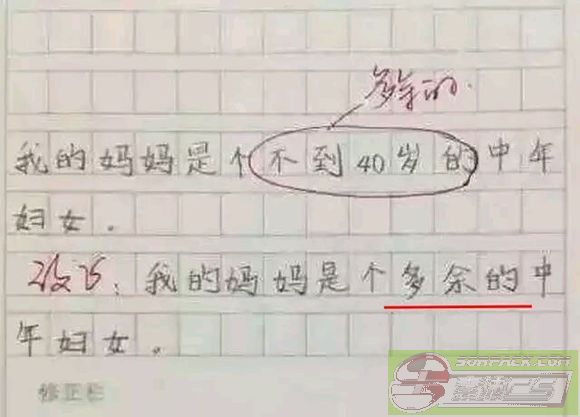 多余的.
我的妈妈是个不到40岁的中年
妇女。
改为：我的妈妈是个多余的中
年妇女。
修正栏
SORPACK.COM